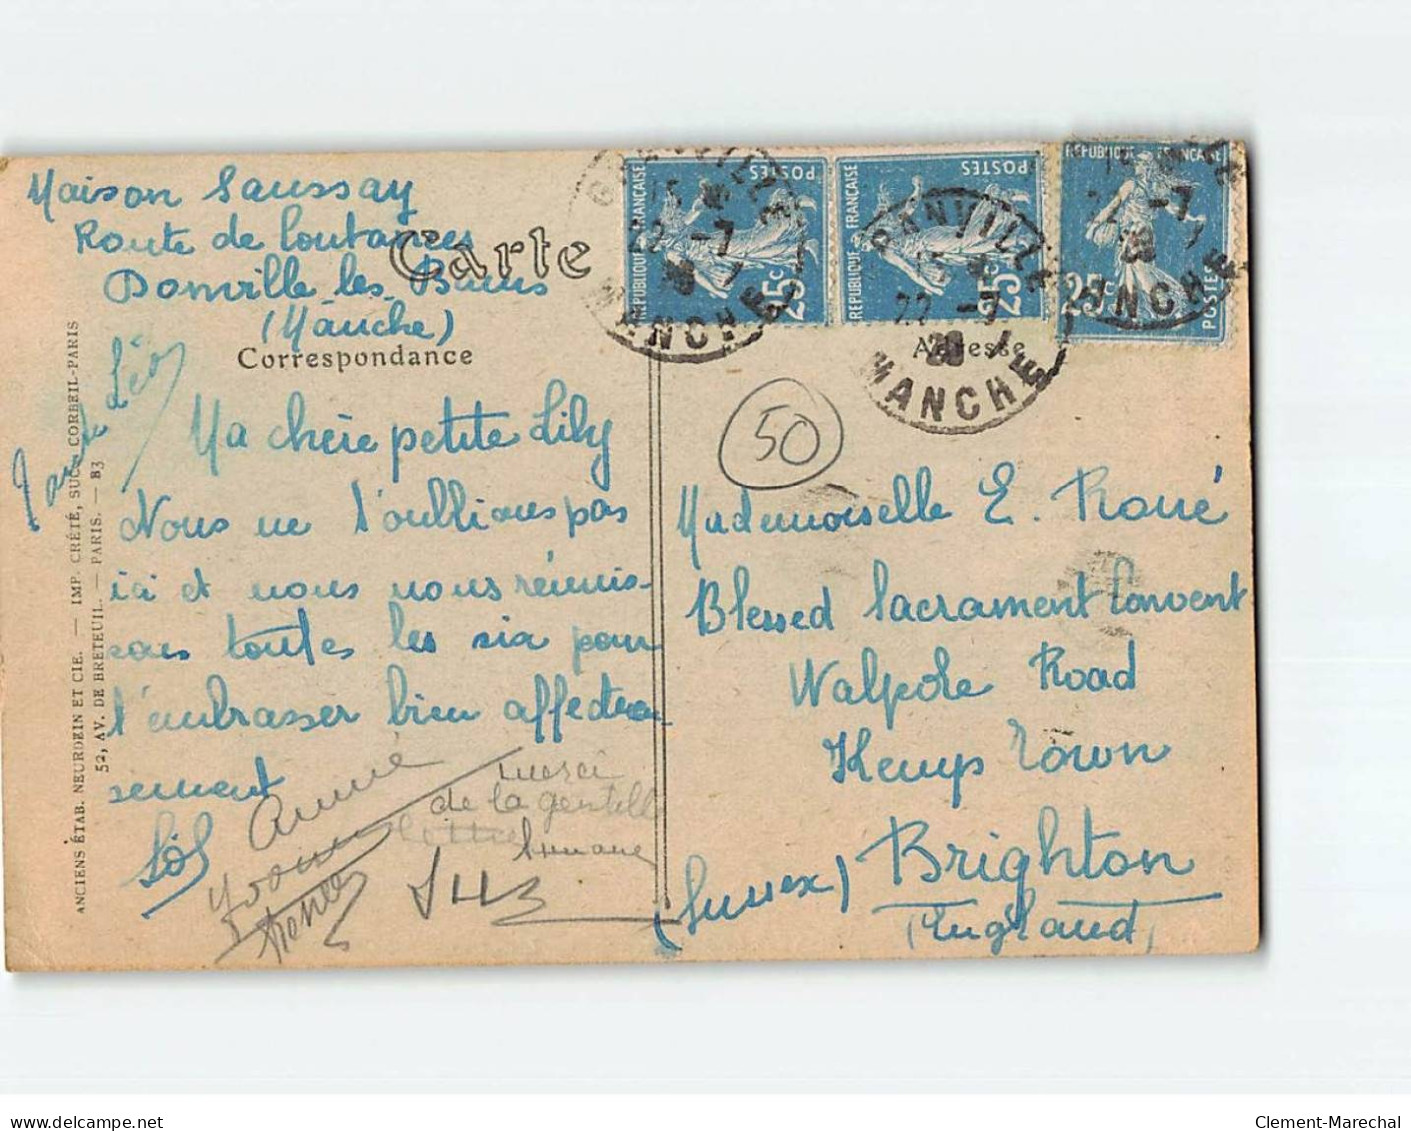 Maison Saussay
Route de Coutances
Donville les Bains
(Manche)
Carte
Correspondance
Adresse
RÉPUBLIQUE FRANÇAISE
POSTES
25c
RÉPUBLIQUE FRANÇAISE
POSTES
25c
RÉPUBLIQUE FRANÇAISE
POSTES
25c
22 -7
MANCHE
22 -7
MANCHE
22 -7
MANCHE
50
Ma chère petite Lily
Nous ne t'oublions pas
ici et nous nous réunis-
sons toutes les six pour
t'embrasser bien affectueu
sement
Annie
merci
de la gentille
lettre
Mademoiselle E. Roué
Blessed Sacrament Convent
Walpole Road
Kemp Town
Brighton
(Sussex)
(England)
ANCIENS ÉTAB. NEURDEIN ET CIE. — IMP. CRÉTÉ, SUCC. CORBEIL-PARIS
52, AV. DE BRETEUIL. — PARIS. — B3
Clement-Marechal